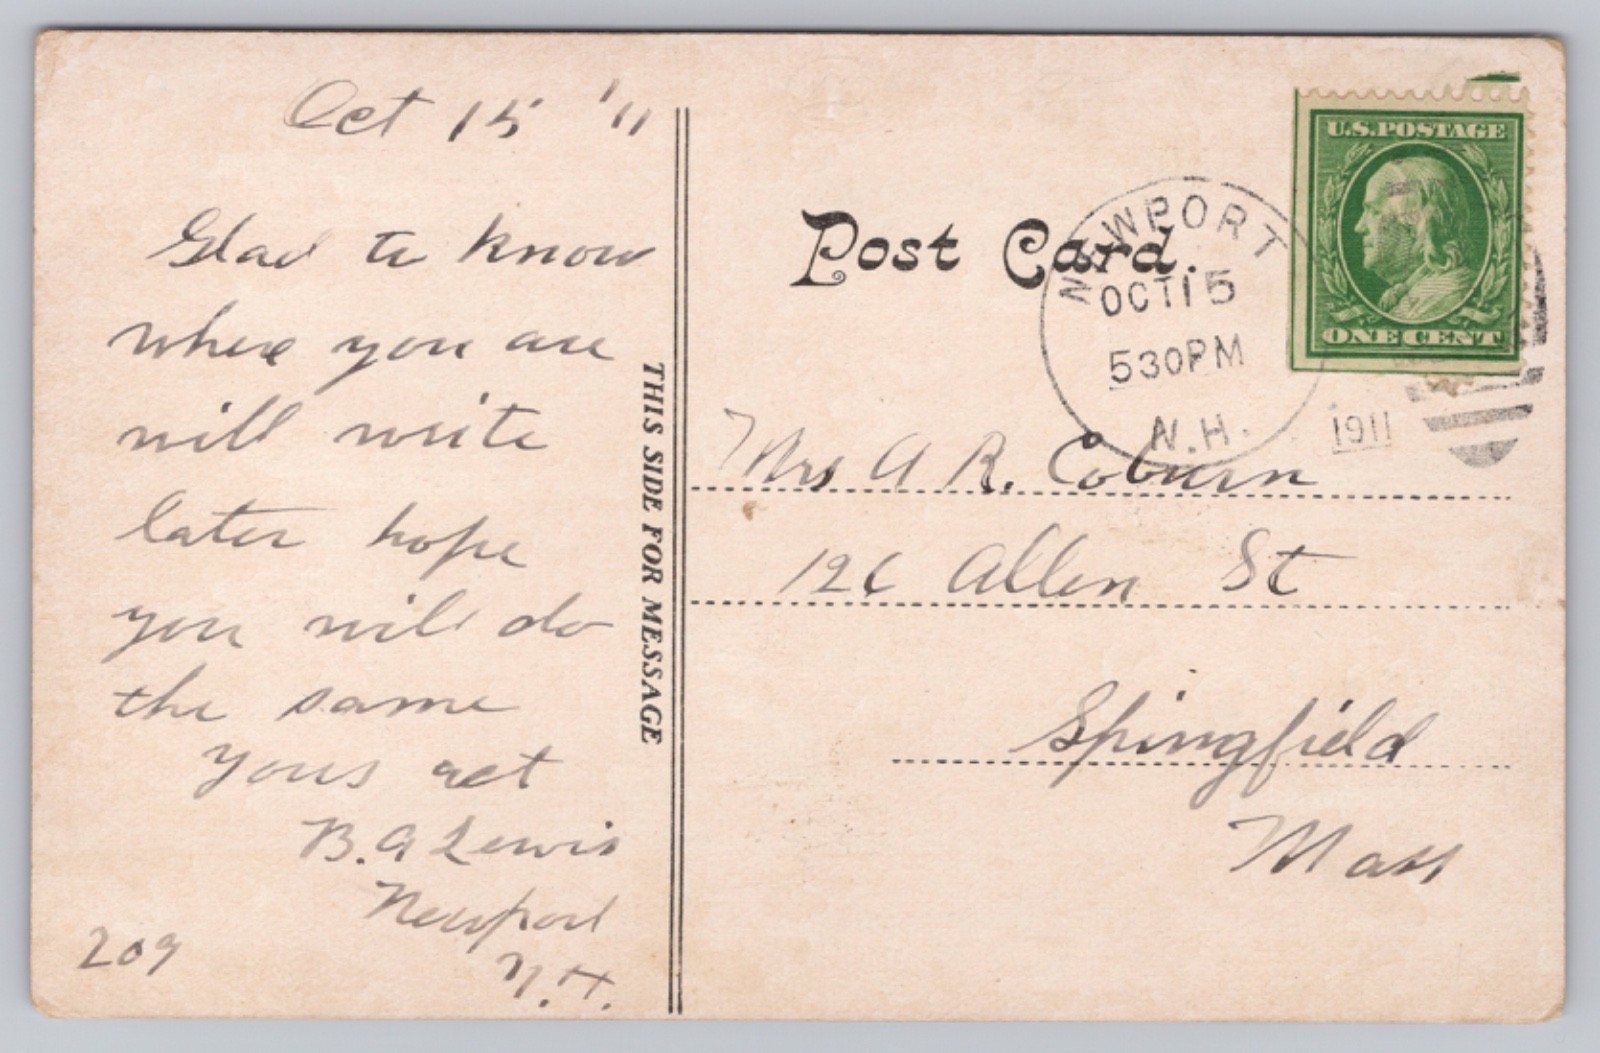 Oct 15 '11
Glad to know
where you are
will write
later hope
you will do
the same
Yours
B. A Lewis
Newport
N.H.
209
THIS SIDE FOR MESSAGE
Post Card.
U.S. POSTAGE
ONE CENT
NEWPORT
OCT 15
530 PM
N.H.
1911
Mrs A R. Coburn
126 Allen St
Springfield
Mass